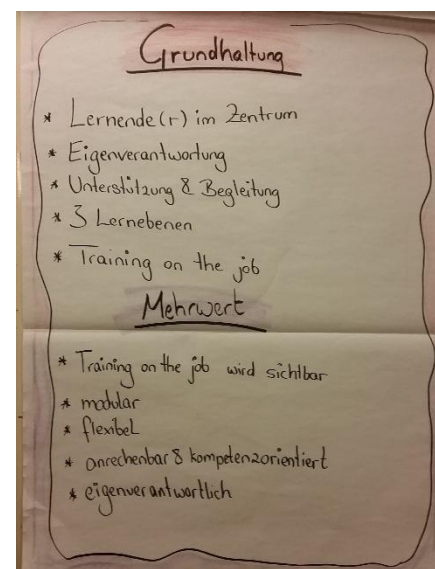 Grundhaltung
* Lernende(r) im Zentrum
* Eigenverantwortung
* Unterstützung & Begleitung
* 3 Lernebenen
* Training on the job
Mehrwert
* Training on the job wird sichtbar
* modular
* flexibel
* anrechenbar & kompetenzorientiert
* eigenverantwortlich